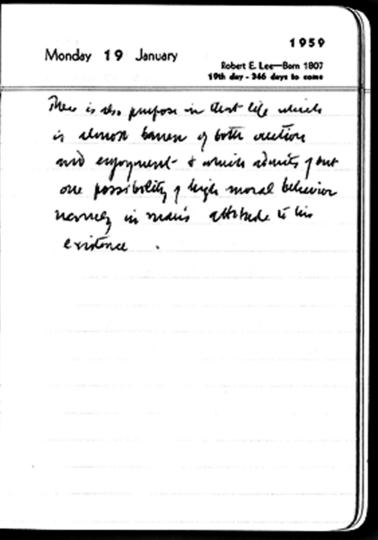 1959
Monday 19 January
Robert E. Lee—Born 1807
19th day - 346 days to come
There is also purpose in that life which
is almost barren of both creation
and enjoyment & which admits of but
one possibility of high moral behavior
namely in man's attitude to his
existence .